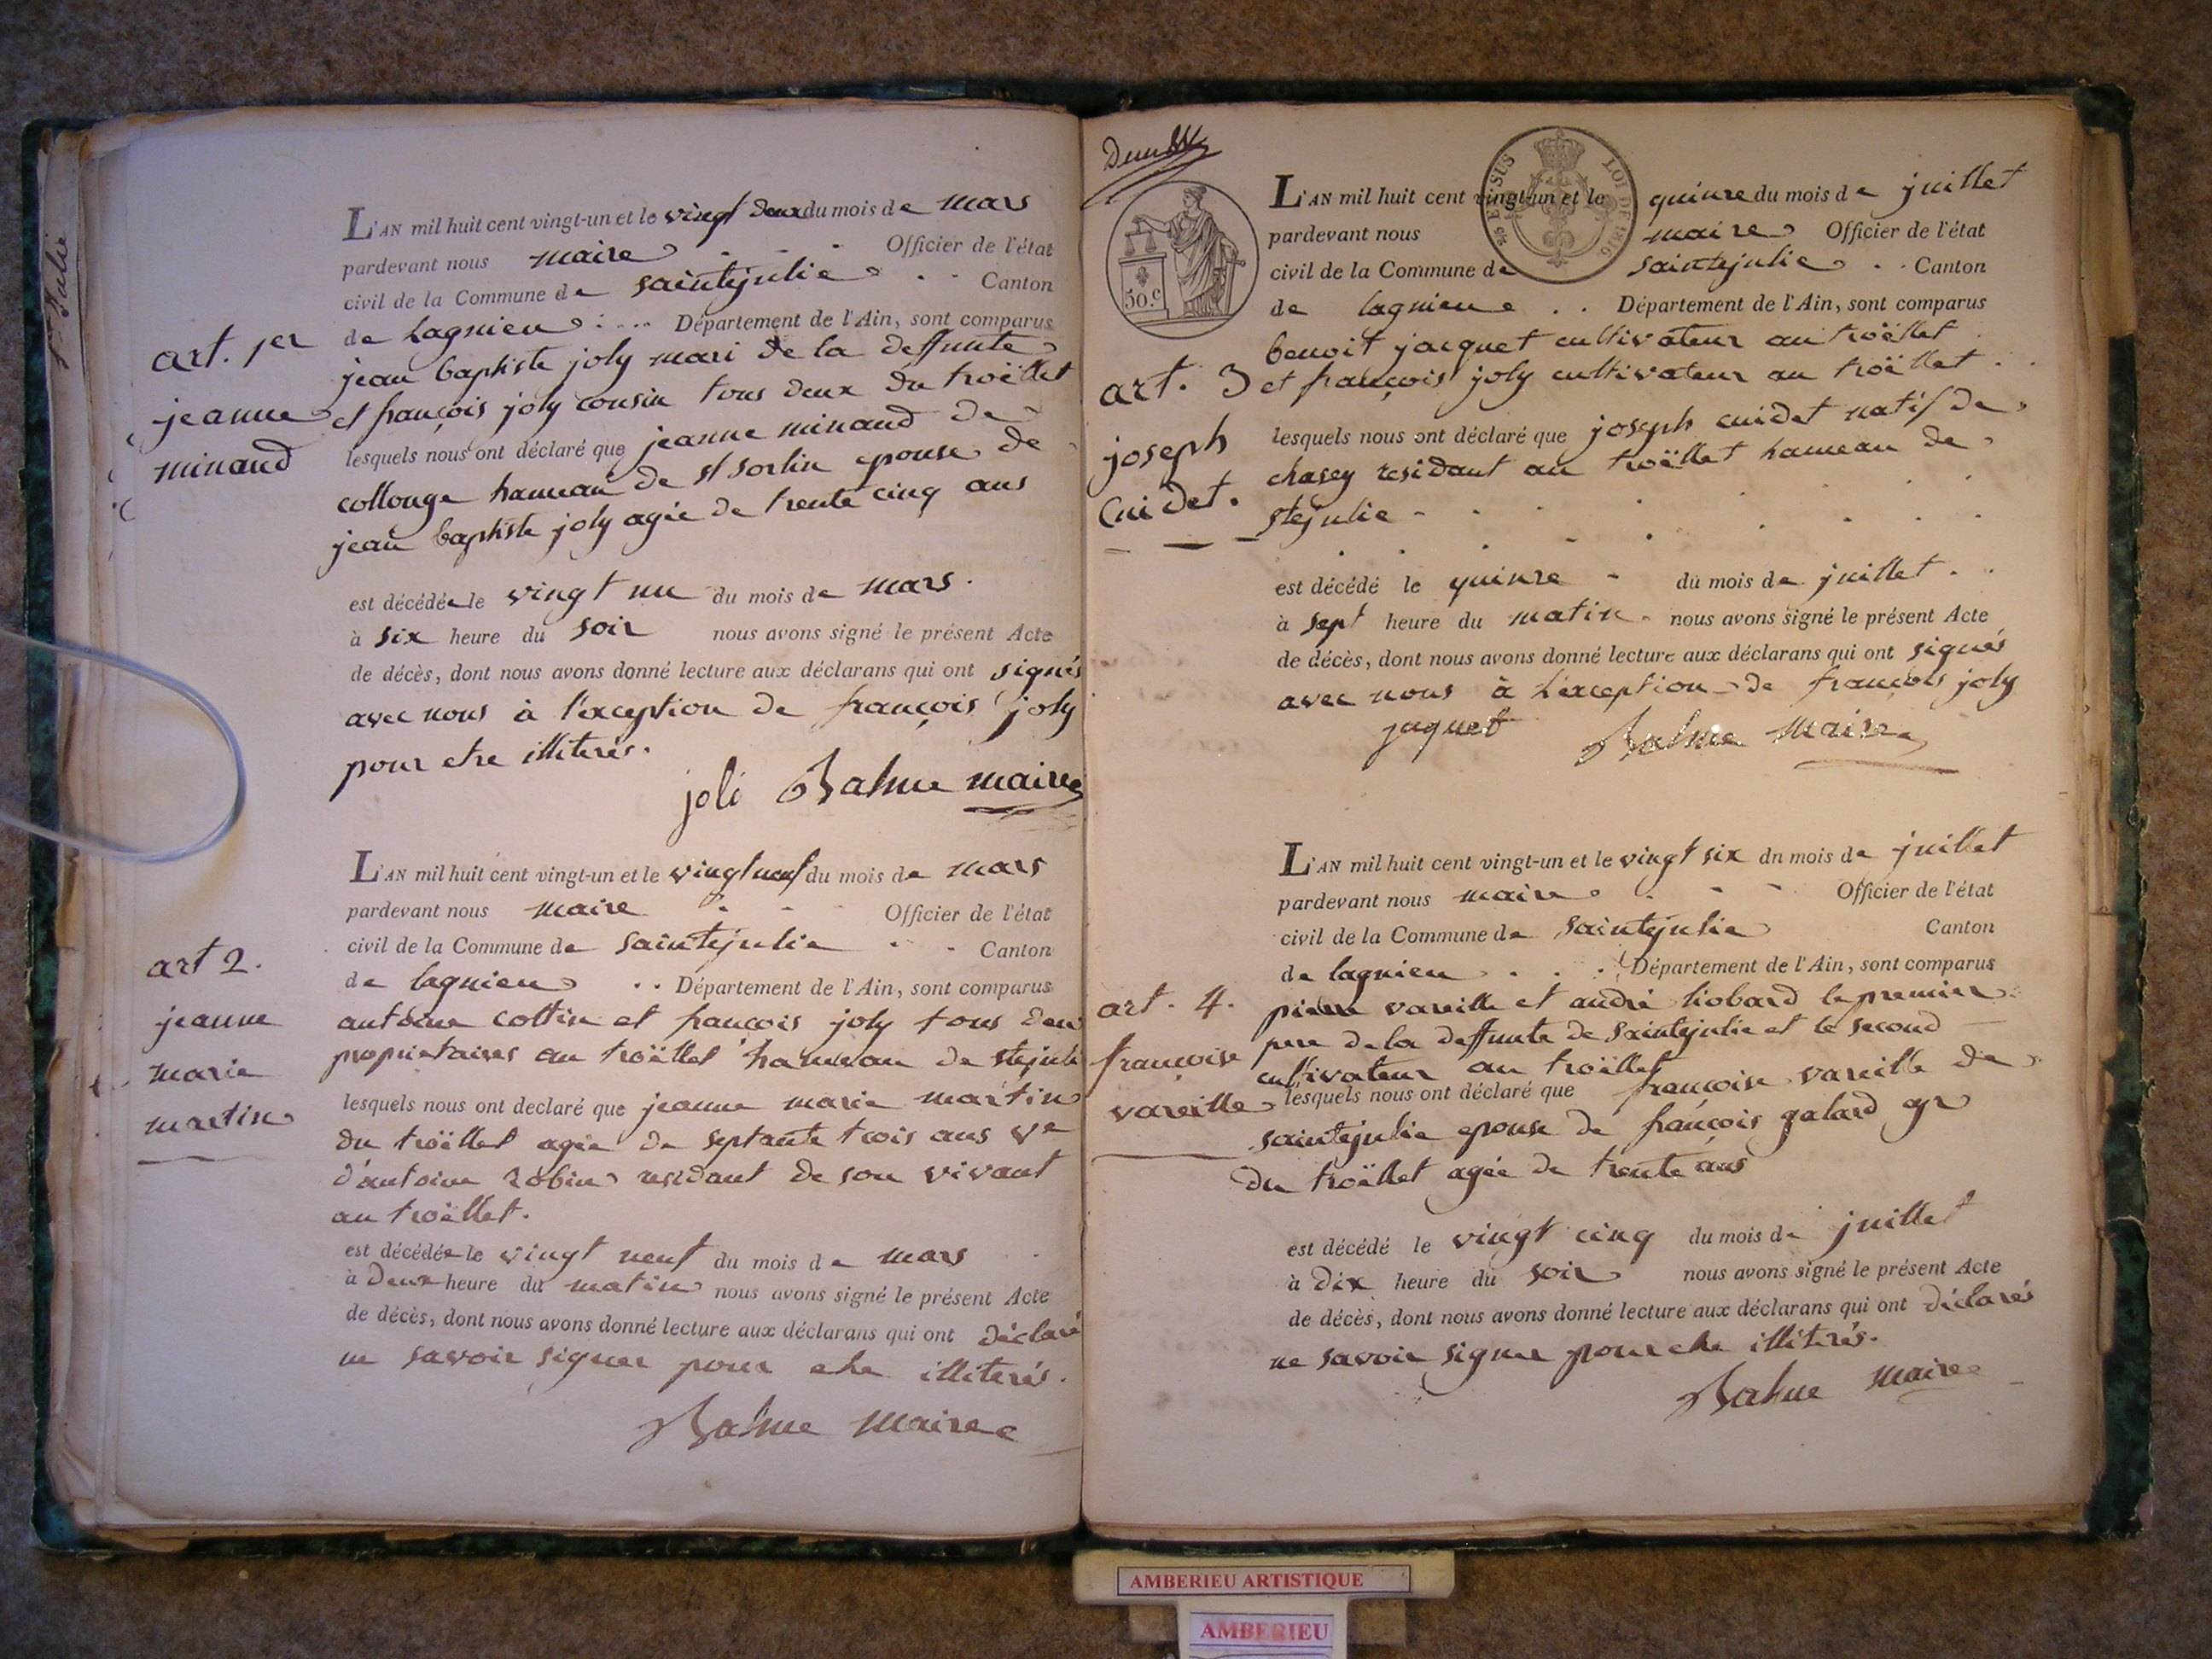 Ste Julie
L'AN mil huit cent vingt-un et le vingt deux du mois de mars
pardevant nous maire Officier de l'état
civil de la Commune de saintejulie Canton
de Lagnieu Département de l'Ain, sont comparus
art. 1er
jean baptiste joly mari de la deffunte
jeanne
et françois joly cousin tous deux du troëllet
minaud
lesquels nous ont déclaré que jeanne minaud de
collonge hameau de st sorlin epouse de
jean baptiste joly agée de trente cinq ans
est décédée le vingt un du mois de mars.
à six heure du soir nous avons signé le présent Acte
de décès, dont nous avons donné lecture aux déclarans qui ont signés
avec nous à l'exception de françois joly
pour etre illiterés.
joli Balme maire
L'AN mil huit cent vingt-un et le vingt neuf du mois de mars
pardevant nous maire Officier de l'état
civil de la Commune de saintejulie Canton
art 2.
de lagnieu Département de l'Ain, sont comparus
jeanne
antoine cottin et françois joly tous deux
marie
proprietaires au troëllet hameau de stejulie
martin
lesquels nous ont declaré que jeanne marie martin
du troëllet agée de septante trois ans ve
d'antoine robin residant de son vivant
au troëllet.
est décédée le vingt neuf du mois de mars
à deux heure du matin nous avons signé le présent Acte
de décès, dont nous avons donné lecture aux déclarans qui ont déclaré
ne savoir signer pour etre illiterés.
Balme maire
50.c
SUS LOI DE 1816
L'AN mil huit cent vingt-un et le quinze du mois de juillet
pardevant nous maire Officier de l'état
civil de la Commune de saintejulie Canton
de lagnieue Département de l'Ain, sont comparus
benoit jacquet cultivateur au troëllet
art. 3
et françois joly cultivateur au troëllet
joseph
lesquels nous ont déclaré que joseph cuidet natif de
Cuidet.
chasey residant au troëllet hameau de
stejulie
est décédé le quinze du mois de juillet.
à sept heure du matin nous avons signé le présent Acte
de décès, dont nous avons donné lecture aux déclarans qui ont signés
avec nous à l'exception de françois joly
jaquet Balme maire
L'AN mil huit cent vingt-un et le vingt six dn mois de juillet
pardevant nous maire Officier de l'état
civil de la Commune de saintejulie Canton
de lagnieu Département de l'Ain, sont comparus
art. 4.
pierre vareille et andré liobard le premier
françoise
pere de la deffunte de saintejulie et le second
vareille
cultivateur au troëllet
lesquels nous ont déclaré que françoise vareille de
saintejulie epouse de françois galard gr
du troëllet agée de trente ans
est décédé le vingt cinq du mois de juillet
à dix heure du soir nous avons signé le présent Acte
de décès, dont nous avons donné lecture aux déclarans qui ont déclarés
ne savoir signer pour etre illiterés.
Balme maire
AMBERIEU ARTISTIQUE
AMBERIEU